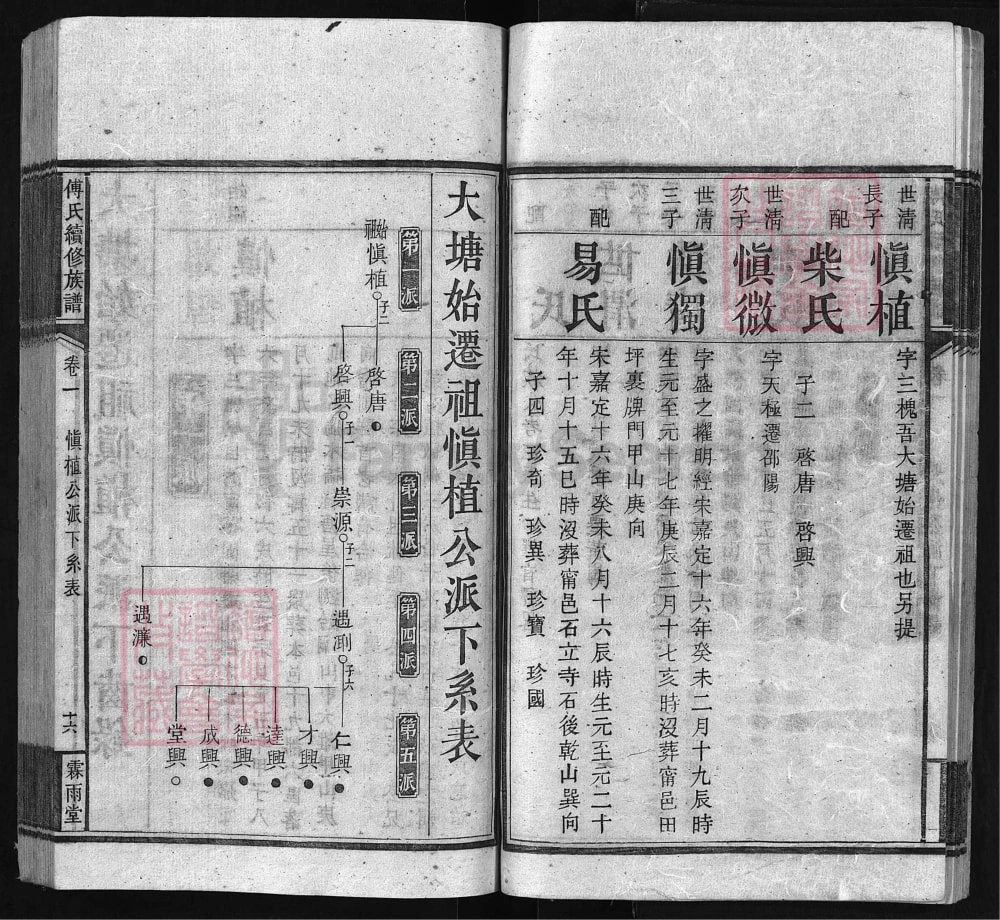 世清長子
愼植
字三槐吾大塘始遷祖也另提
配
柴氏
子二 啓唐 啓興
世清次子
愼微
字天極遷邵陽
世清三子
愼獨
字盛之擢明經宋嘉定十六年癸未二月十九辰時
生元至元十七年庚辰二月十七亥時沒葬甯邑田
坪裏牌門甲山庚向
配
易氏
宋嘉定十六年癸未八月十六辰時生元至元二十
年十月十五巳時沒葬甯邑石立寺石後乾山巽向
子四 珍奇 珍異 珍寶 珍國
大塘始遷祖愼植公派下系表
第一派
第二派
第三派
第四派
第五派
始祖愼植 子二
啓唐
啓興 子一
崇源 子二
遇剛 子六
仁興
才興
達興
德興
成興
堂興
遇濂
傅氏續修族譜
卷一 愼植公派下系表
十六
霖雨堂